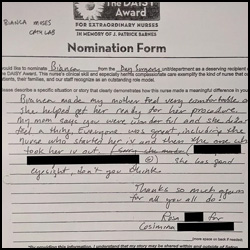 BIANCA MISES
CATH LAB
The DAISY
Award
FOR EXTRAORDINARY NURSES
IN MEMORY OF J. PATRICK BARNES
Nomination Form
would like to nominate Bianca from the Day Surgery unit/department as a deserving recipient of
DAISY Award. This nurse's clinical skill and especially her/his compassionate care exemplify the kind of nurse that
patients, their families, and our staff recognize as an outstanding role model.
Please describe a specific situation or story that clearly demonstrates how this nurse made a meaningful difference in
Bianca made my mother feel very comfortable as
she helped get her ready for her procedure.
My mom says you were wonderful and she didn't
feel a thing. Everyone was great, including the
nurse who started her iv and then the one who
took her iv out.
She has good
eyesight, don't you think
Thanks so much again
for all you all do!
Rosa for
Cosimina